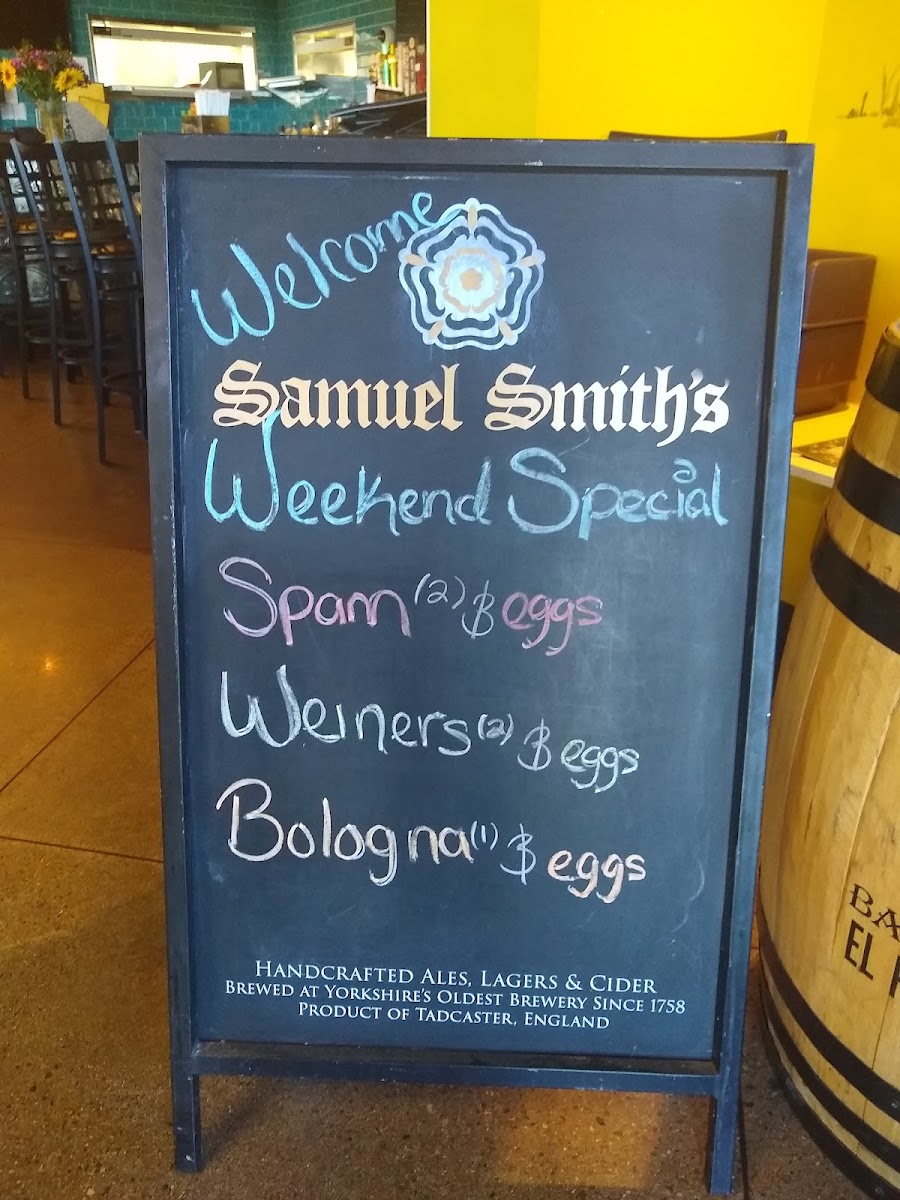 Welcome
Samuel Smith's
Weekend Special
Spam (2) & eggs
Weiners (2) & eggs
Bologna (1) & eggs
Handcrafted Ales, Lagers & Cider
Brewed at Yorkshire's Oldest Brewery Since 1758
Product of Tadcaster, England
BA
EL